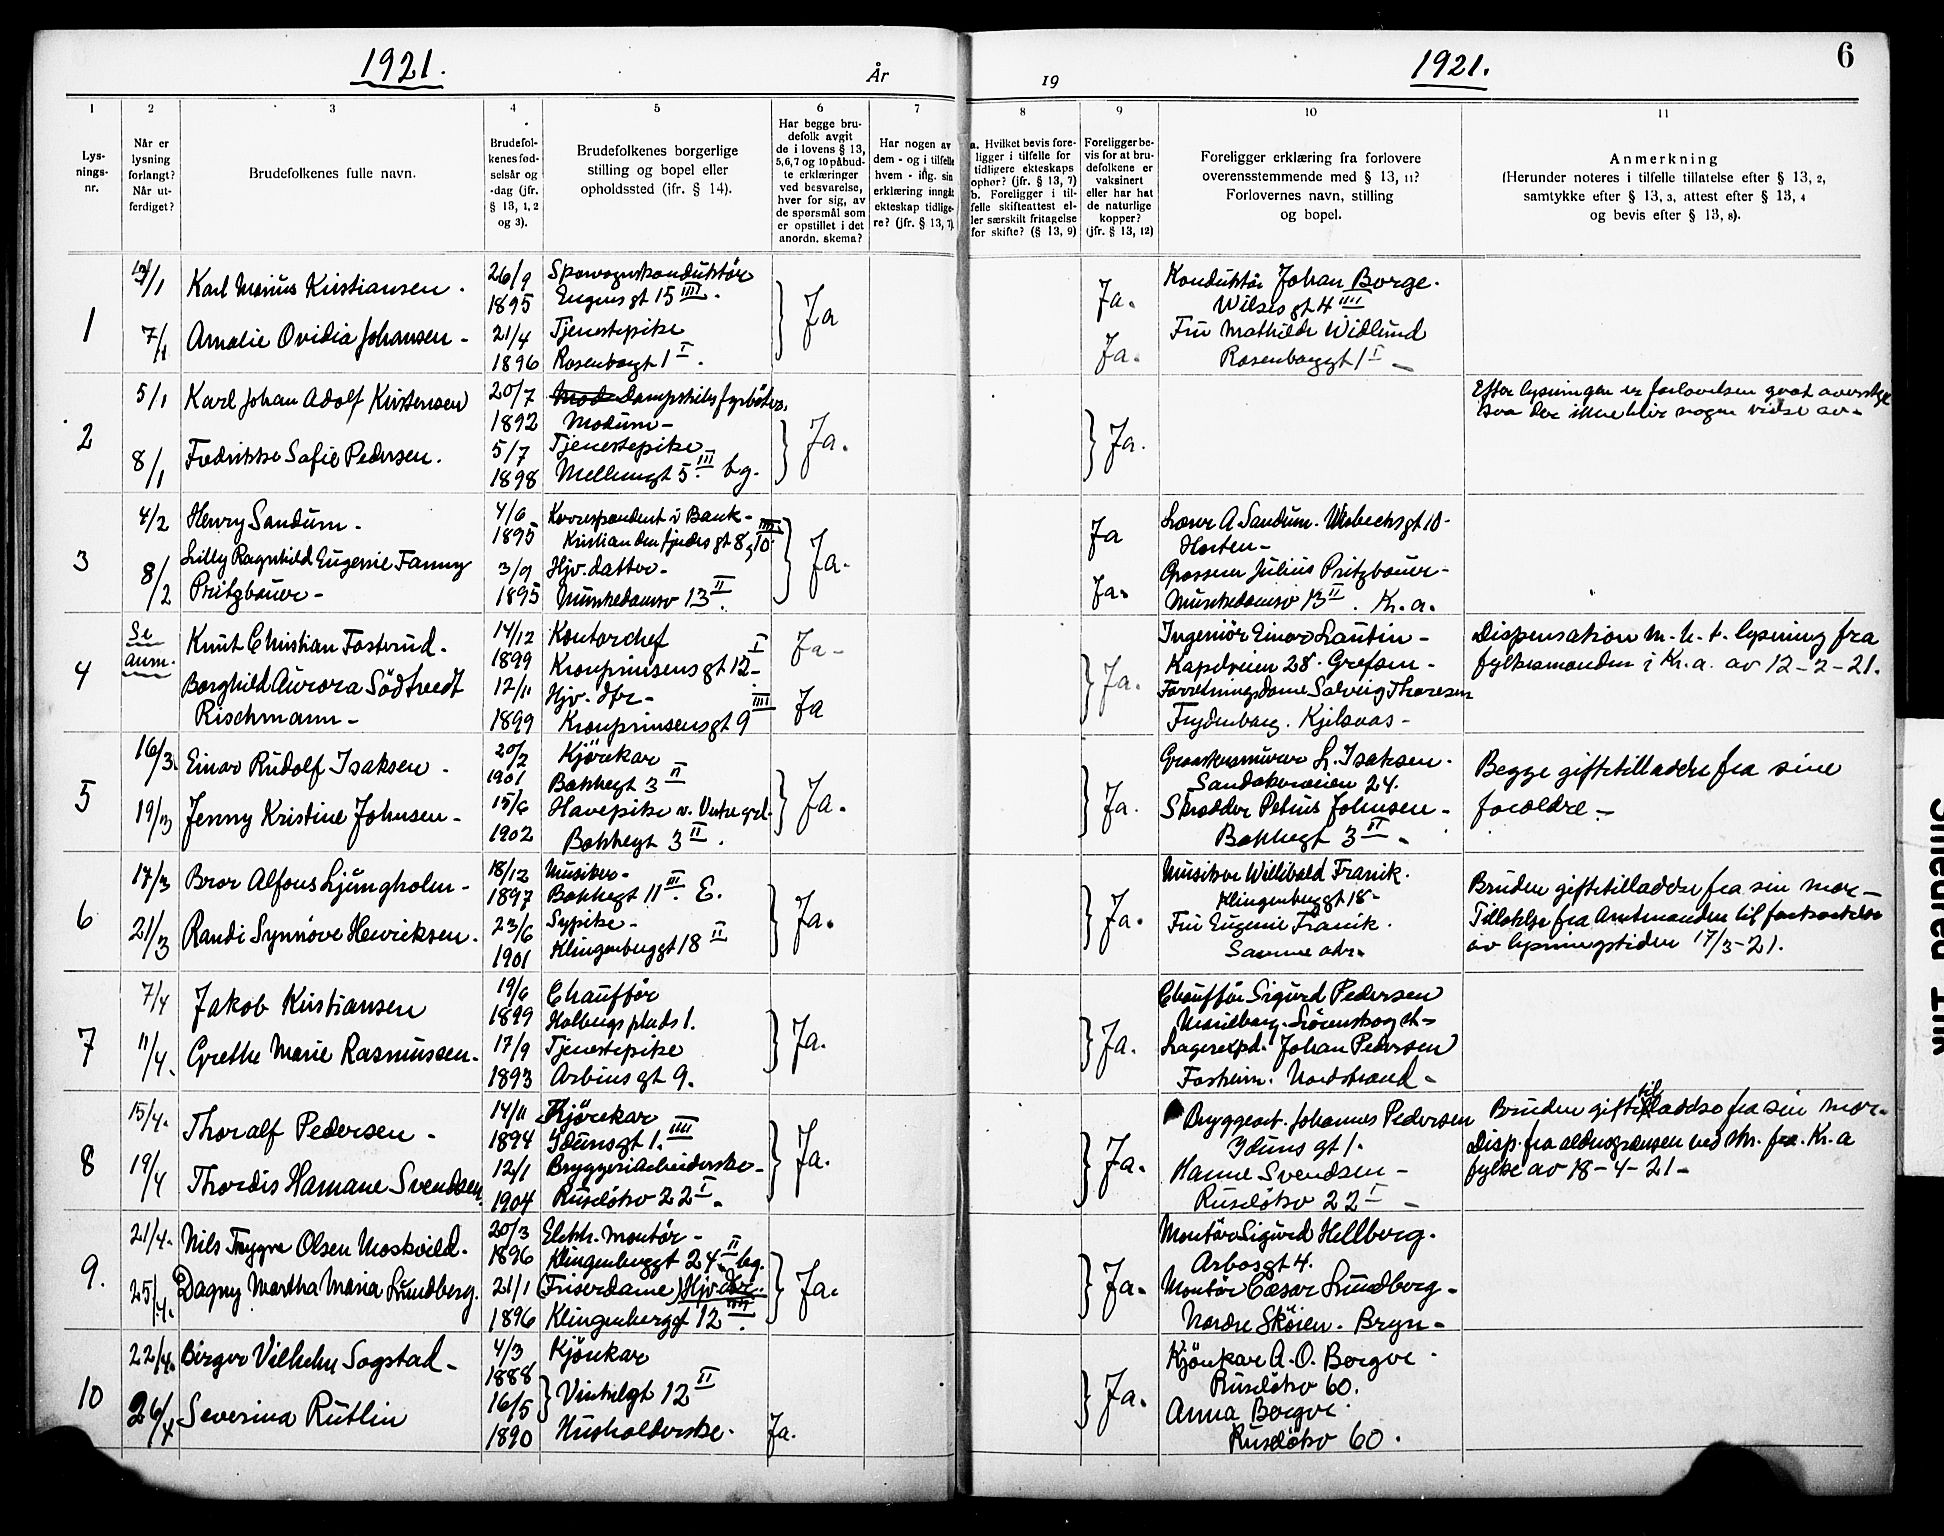 1921.
År
1
2
3
4
5
6
7
Lys-
nings-
nr.
Når er
lysning
forlangt?
Når ut-
ferdiget?
Brudefolkenes fulle navn.
Brudefol-
kenes fød-
selsår og
-dag (jfr.
§ 13, 1, 2
og 3).
Brudefolkenes borgerlige
stilling og bopel eller
opholdssted (jfr. § 14).
Har begge bru-
defolk avgit
de i lovens § 13,
5,6,7 og 10 påbud-
te erklæringer
ved besvarelse,
hver for sig, av
de spørsmål som
er opstillet i det
anordn. skema?
Har nogen av
dem - og i tilfelle
hvem - iflg. sin
erklæring inngått
ekteskap tidlige-
re? (jfr. § 13, 7)
1
7/1
Karl Marius Kristiansen.
Amalie Ovidia Johansen -
26/9
1895
21/4
1896
Sporvognskonduktör
Eugens gt 15 IIII.
Tjenestepike
Rosenborgt 1 I.
Ja
2
5/1
8/1
Karl Johan Adolf Kristensen
Fredrikke Sofie Pedersen.
20/7
1892
5/7
1898
dampskibsfyrböter.
Modum -
Tjenestepike
Mellumgt 5 III bg.
Ja.
3
4/2
8/2
Henry Sandum -
Lilly Ragnhild Eugenie Fanny
Pritzbauer -
4/6
1895
3/9
1895
Korrespondent i Bank -
Kristian den fjerdes gt 8, 10 IIII
Hjv. datter -
Munkedamsv 13 II.
Ja.
4
Se
anm.
Knut Christian Fosterud.
Borghild Aurora Södtvedt
Rischmann -
14/12
1899
12/11
1899
Kontorchef
Kronprinsensgt 12 I -
Hjv. dtr -
Kronprinsensgt 9 IIII
Ja -
Ja
5
16/3
19/3
Einar Rudolf Isaksen -
Jenny Kristine Johnsen -
20/2
1901
15/6
1902
Kjörekar
Bakkegt 3 II
Havepike v. Vestre grl.
Bakkegt 3 II.
Ja.
6
17/3
21/3
Bror Alfons Ljungholm -
Randi Synnöve Henriksen.
18/12
1897
23/6
1901
Musiker -
Bakkegt 11 III. E.
Sypike -
Klingenberggt 18 II
Ja.
7
7/4
11/4.
Jakob Kristiansen
Grethe Marie Rasmussen.
19/6
1899
17/9
1893
Chaufför
Holbergs plads 1.
Tjenestepike
Arbins gt 9.
Ja.
8
15/4.
19/4
Thoralf Pedersen -
Thordis Hamane Svendsen.
14/11
1894
12/1
1904
Kjörekar
Idunsgt 1. IIII
Bryggeriarbeiderske -
Ruselökv 22 I.
Ja.
9.
21/4.
25/4.
Nils Trygve Olsen Moskvild.
Dagny Martha Maria Lundberg.
20/3
1896
21/1
1896
Elektr. montör -
Klingenberggt 24 II bg.
(Friserdame) Hjv. dtr.
Klingenberggt 12 IIII.
Ja.
10
22/4.
26/4
Birger Vilhelm Sogstad -
Severina Rutlin
4/3
1888
16/5
1890
Kjörekar
Vinkelgt 12 II
Husholderske.
Ja.
19
1921.
6
8
9
10
11
a. Hvilket bevis fore-
ligger i tilfelle for
tidligere ekteskaps
ophør? (jfr. § 13, 7)
b. Foreligger i til-
felle skifteattest el-
ler særskilt fritagelse
for skifte? (§ 13, 9)
Foreligger be-
vis for at bru-
defolkene er
vaksinert
eller har hat
de naturlige
kopper?
(jfr. § 13, 12)
Foreligger erklæring fra forlovere
overensstemmende med § 13, 11?
Forlovernes navn, stilling
og bopel.
Anmerkning
(Herunder noteres i tilfelle tillatelse efter § 13, 2,
samtykke efter § 13, 3, attest efter § 13, 4
og bevis efter § 13, 8).
Ja.
Ja.
Konduktör Johan Borge.
Wilses gt 4 IIII
Fru Mathilde Widlund
Rosenborggt 1 I -
Ja.
Efter lysningen er forlovelsen
Ja
Ja.
A. Sandum. gt 10-
Horten -
Grosserer Julius Pritzbauer -
Munkedamsv 13 II. Kr.a.
Ja.
Ingeniör Einar Lautin -
Kapelveien 28. Grefsen -
Forretningsdame Solveig Thoresen
Frydenberg. Kjelsaas -
Dispensation m.h.t. lysning fra
fylkesmanden i Kr.a. av 12-2-21.
Ja.
L. Isaksen.
Sandakerveien 24.
Skrædder Petrus Johnsen -
Bakkegt 3 II -
Begge giftetilladelse fra sine
forældre -
Ja.
Musiker Willibald Franik.
Klingenberggt 18 -
Fru Eugenie Franik.
Samme adr.
Bruden giftetilladelse fra sin mor -
Tillatelse fra Amtmanden til forkortelse
av lysningstiden 17/3-21.
Ja.
Chaufför Sigurd Pedersen
Marielborg. Lörenskog st -
Lagerexpd. Johan Pedersen
Fosheim. Nordstrand -
Ja.
Bryggearb. Johannes Pedersen
Iduns gt 1.
Hanne Svendsen -
Ruselökv 22 I -
Bruden giftetilladelse fra sin mor.
Disp. fra aldersgrænsen ved skr. fra Kr.a
fylke av 18-4-21 -
Ja.
Montör Sigurd Hellberg.
Arbosgt 4.
Montör Cæsar Lundberg -
Nordre Sköien. Bryn -
Ja.
Kjörekar A. O. Borgve.
Ruselökv 60.
Anna Borgve.
Ruselökv 60.